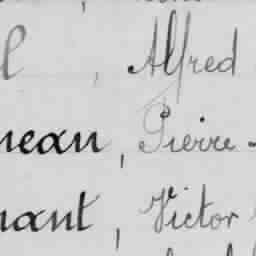 l, Alfred
neau, Pierre -
nant, Victor